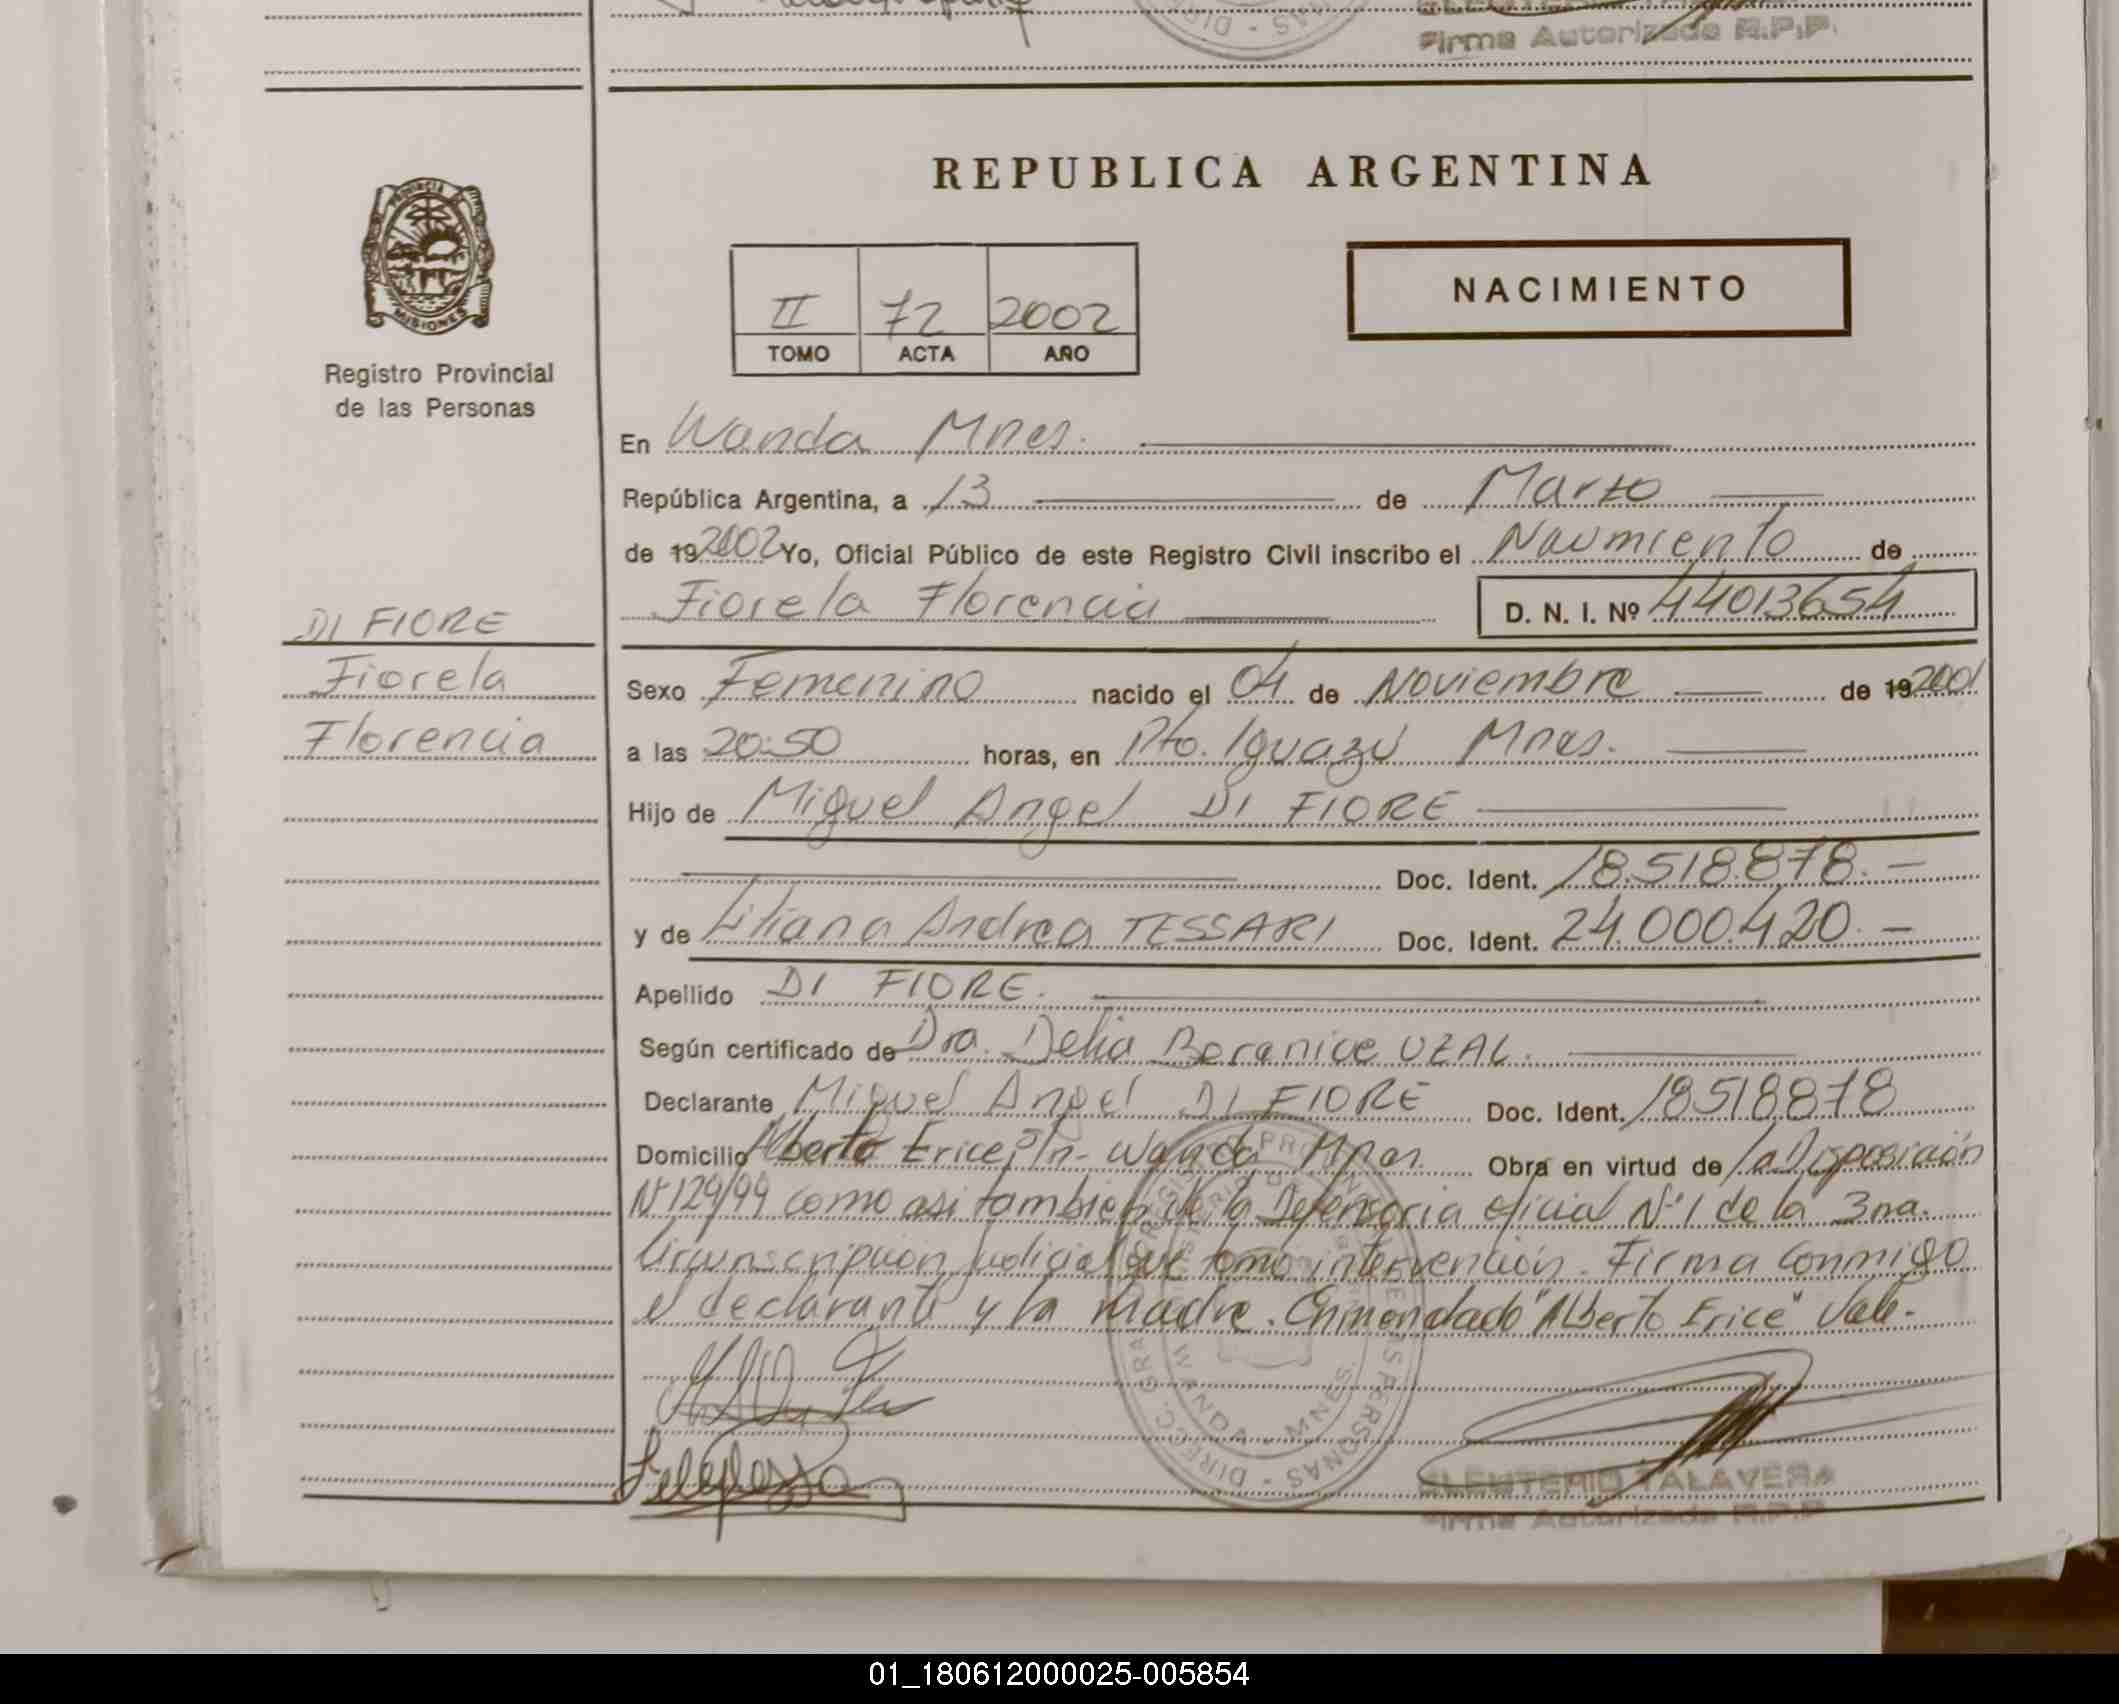 Firma Autorizada R.P.P.
REPUBLICA ARGENTINA
PROVINCIA
MISIONES
Registro Provincial
de las Personas
II 72 2002
TOMO ACTA AÑO
NACIMIENTO
En Wanda Mnes.
República Argentina, a 13 de Marzo
de 19 2002 Yo, Oficial Público de este Registro Civil inscribo el Nacimiento de
Fiorela Florencia D. N. I. Nº 44013654
DI FIORE
Fiorela
Florencia
Sexo Femenino nacido el 04 de Noviembre de 19 2001
a las 20:50 horas, en Pto. Iguazú Mnes.
Hijo de Miguel Angel DI FIORE
Doc. Ident. 18.518.878.-
y de Liliana Andrea TESSARI Doc. Ident. 24.000.420.-
Apellido DI FIORE.
Según certificado de Dra. Delia Berenice UZAL.
Declarante Miguel Angel DI FIORE Doc. Ident. 18518878
Domicilio Alberto Erice s/n - Wanda Mnes. Obra en virtud de la Disposición
Nº 129/99 como asi tambien de la Defensoria oficial Nº 1 de la 3ra.
Circunscripción Judicial que tomo intervención. Firma conmigo
el declarante y la madre. Enmendado "Alberto Erice" Vale.-
WANDA - MNES.
ELEUTERIO TALAVERA
Firma Autorizada R.P.P.
01_180612000025-005854